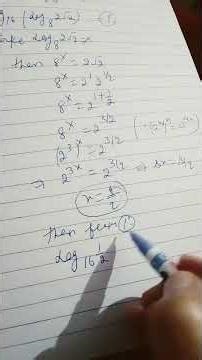 g₁₆ (log₈ 2√2) — ①
Take log₈ 2√2 = x
then 8ˣ = 2√2
8ˣ = 2¹ 2^{1/2}
8ˣ = 2^{1+1/2}
8ˣ = 2^{3/2}
(2³)ˣ = 2^{3/2}
⇒ 2^{3x} = 2^{3/2} ⇒ 3x = 3/2
x = 1/2
then from ①
log₁₆ 1/2